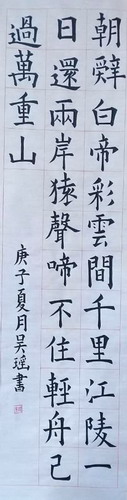 朝辤白帝彩雲間千里江陵一
日還兩岸猿聲啼不住輕舟已
過萬重山
庚子夏月吴瑶書